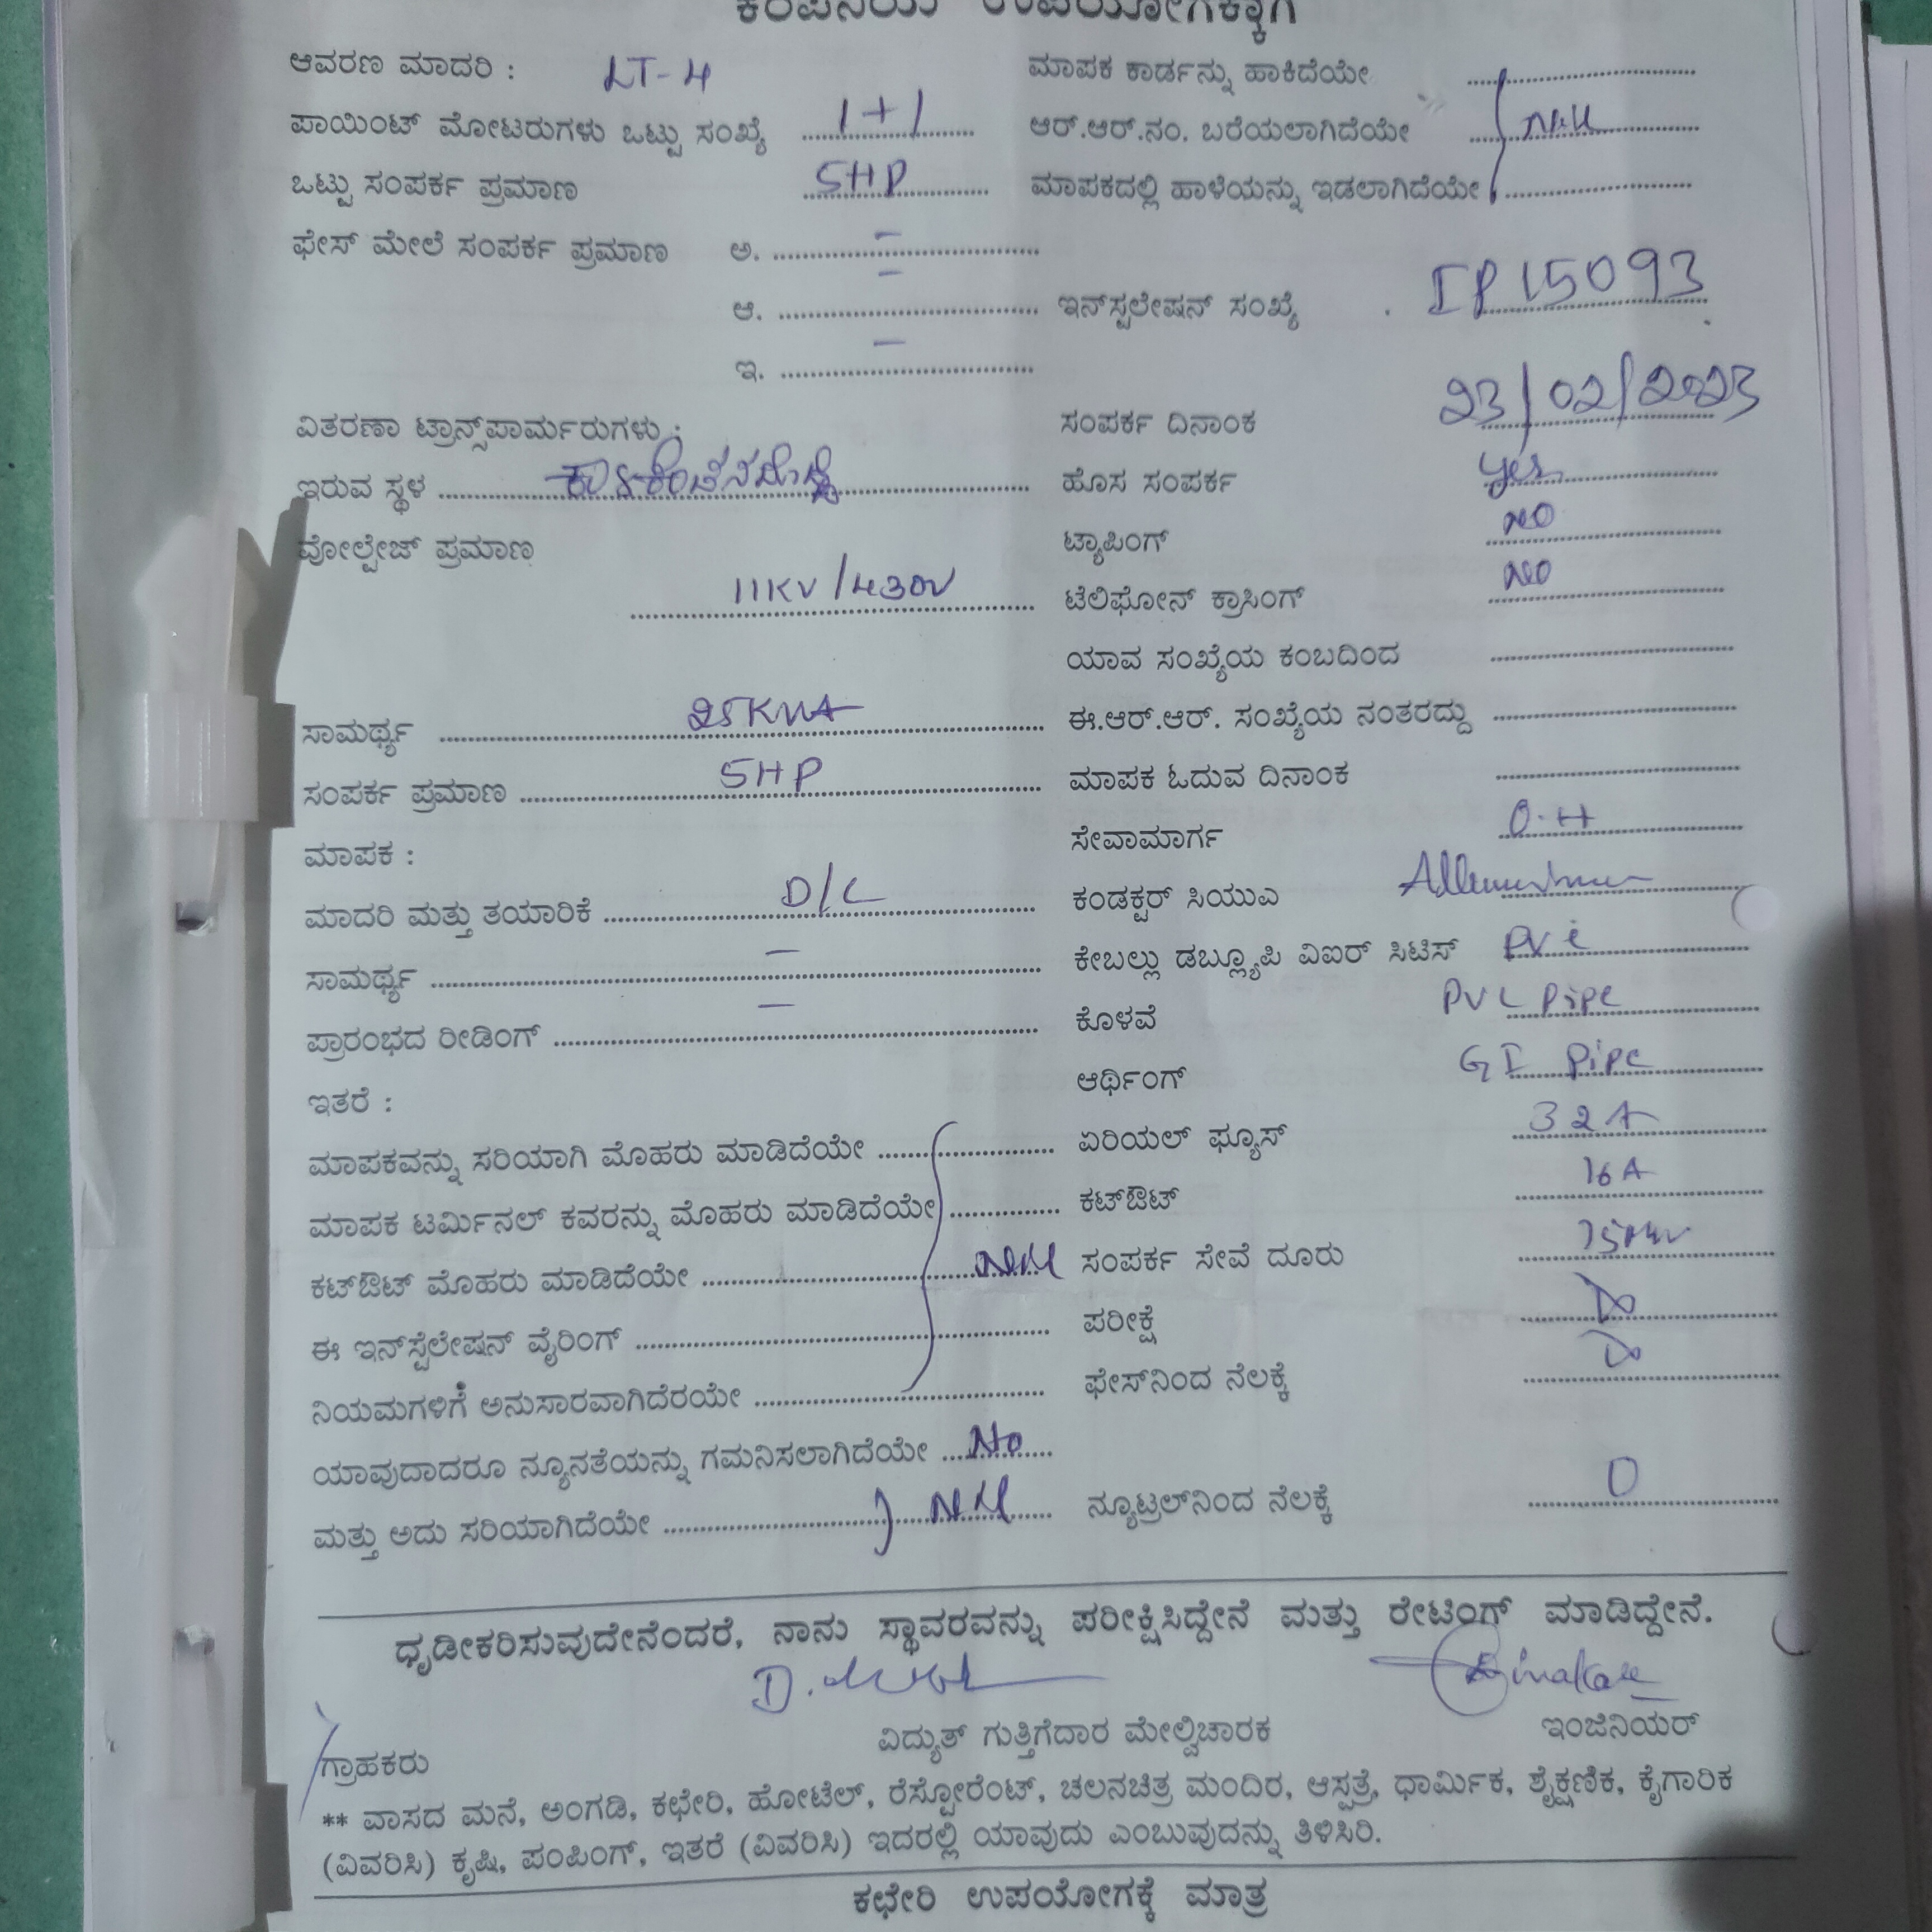 ಕಂಪನಿಯ ಉಪಯೋಗಕ್ಕಾಗಿ
ಆವರಣ ಮಾದರಿ : LT-4
ಪಾಯಿಂಟ್ ಮೋಟರುಗಳು ಒಟ್ಟು ಸಂಖ್ಯೆ 1+1
ಒಟ್ಟು ಸಂಪರ್ಕ ಪ್ರಮಾಣ 5HP
ಫೇಸ್ ಮೇಲೆ ಸಂಪರ್ಕ ಪ್ರಮಾಣ ಅ. –
ಆ. –
ಇ. –
ವಿತರಣಾ ಟ್ರಾನ್ಸ್‌ಪಾರ್ಮರುಗಳು :
ಇರುವ ಸ್ಥಳ
ವೋಲ್ಟೇಜ್ ಪ್ರಮಾಣ
11KV/430V
ಸಾಮರ್ಥ್ಯ 25KVA
ಸಂಪರ್ಕ ಪ್ರಮಾಣ 5HP
ಮಾಪಕ :
ಮಾದರಿ ಮತ್ತು ತಯಾರಿಕೆ D/L
ಸಾಮರ್ಥ್ಯ –
ಪ್ರಾರಂಭದ ರೀಡಿಂಗ್ –
ಇತರೆ :
ಮಾಪಕವನ್ನು ಸರಿಯಾಗಿ ಮೊಹರು ಮಾಡಿದೆಯೇ
ಮಾಪಕ ಟರ್ಮಿನಲ್ ಕವರನ್ನು ಮೊಹರು ಮಾಡಿದೆಯೇ
ಕಟ್‌ಔಟ್ ಮೊಹರು ಮಾಡಿದೆಯೇ Nil
ಈ ಇನ್‌ಸ್ಟೆಲೇಷನ್ ವೈರಿಂಗ್
ನಿಯಮಗಳಿಗೆ ಅನುಸಾರವಾಗಿದೆರಯೇ
ಯಾವುದಾದರೂ ನ್ಯೂನತೆಯನ್ನು ಗಮನಿಸಲಾಗಿದೆಯೇ No
ಮತ್ತು ಅದು ಸರಿಯಾಗಿದೆಯೇ Nil
ಮಾಪಕ ಕಾರ್ಡನ್ನು ಹಾಕಿದೆಯೇ
ಆರ್.ಆರ್.ನಂ. ಬರೆಯಲಾಗಿದೆಯೇ Nil
ಮಾಪಕದಲ್ಲಿ ಹಾಳೆಯನ್ನು ಇಡಲಾಗಿದೆಯೇ
ಇನ್‌ಸ್ಟಲೇಷನ್ ಸಂಖ್ಯೆ IP15093
ಸಂಪರ್ಕ ದಿನಾಂಕ 23/02/2023
ಹೊಸ ಸಂಪರ್ಕ yes
ಟ್ಯಾಪಿಂಗ್ NO
ಟೆಲಿಫೋನ್ ಕ್ರಾಸಿಂಗ್ NO
ಯಾವ ಸಂಖ್ಯೆಯ ಕಂಬದಿಂದ
ಈ.ಆರ್.ಆರ್. ಸಂಖ್ಯೆಯ ನಂತರದ್ದು
ಮಾಪಕ ಓದುವ ದಿನಾಂಕ
ಸೇವಾಮಾರ್ಗ O.H
ಕಂಡಕ್ಟರ್ ಸಿಯುಎ
ಕೇಬಲ್ಲು ಡಬ್ಲ್ಯೂಪಿ ವಿಐರ್ ಸಿಟಿಸ್ PVC
ಕೊಳವೆ PVC Pipe
ಆರ್ಥಿಂಗ್ GI Pipe
ಏರಿಯಲ್ ಫ್ಯೂಸ್ 32A
ಕಟ್‌ಔಟ್ 16A
ಸಂಪರ್ಕ ಸೇವೆ ದೂರು
ಪರೀಕ್ಷೆ
ಫೇಸ್‌ನಿಂದ ನೆಲಕ್ಕೆ
ನ್ಯೂಟ್ರಲ್‌ನಿಂದ ನೆಲಕ್ಕೆ 0
ಧೃಡೀಕರಿಸುವುದೇನೆಂದರೆ, ನಾನು ಸ್ಥಾವರವನ್ನು ಪರೀಕ್ಷಿಸಿದ್ದೇನೆ ಮತ್ತು ರೇಟಿಂಗ್ ಮಾಡಿದ್ದೇನೆ.
ವಿದ್ಯುತ್ ಗುತ್ತಿಗೆದಾರ ಮೇಲ್ವಿಚಾರಕ
ಇಂಜಿನಿಯರ್
ಗ್ರಾಹಕರು
** ವಾಸದ ಮನೆ, ಅಂಗಡಿ, ಕಛೇರಿ, ಹೋಟೆಲ್, ರೆಸ್ಟೋರೆಂಟ್, ಚಲನಚಿತ್ರ ಮಂದಿರ, ಆಸ್ಪತ್ರೆ, ಧಾರ್ಮಿಕ, ಶೈಕ್ಷಣಿಕ, ಕೈಗಾರಿಕ
(ವಿವರಿಸಿ) ಕೃಷಿ, ಪಂಪಿಂಗ್, ಇತರೆ (ವಿವರಿಸಿ) ಇದರಲ್ಲಿ ಯಾವುದು ಎಂಬುವುದನ್ನು ತಿಳಿಸಿರಿ.
ಕಛೇರಿ ಉಪಯೋಗಕ್ಕೆ ಮಾತ್ರ